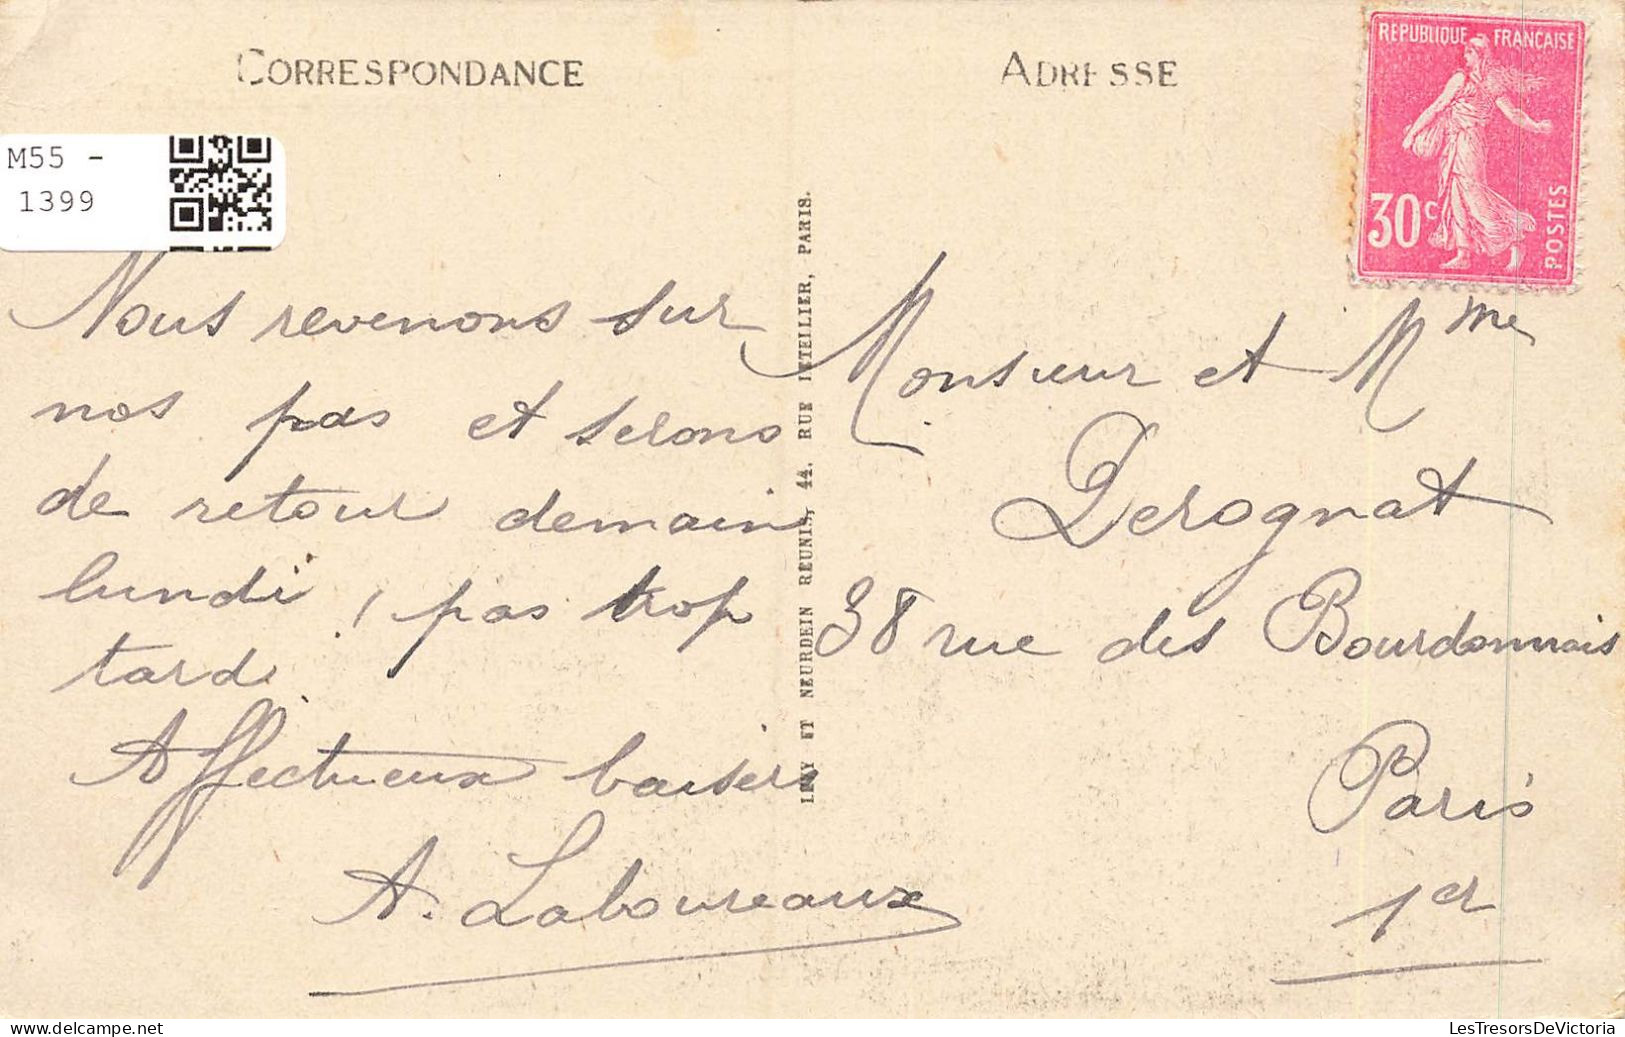 CORRESPONDANCE
ADRESSE
REPUBLIQUE FRANÇAISE
30c
POSTES
M55 -
1399
Nous revenons sur
nos pas et serons
de retour demain
lundi, pas trop
tard.
Affectueux baisers
A. Laboureaux
LEVY ET NEURDEIN REUNIS, 44, RUE LETELLIER, PARIS.
Monsieur et Mme
Derognat
38 rue des Bourdonnais
Paris
1er
delcampe.net
LesTresorsDeVictoria